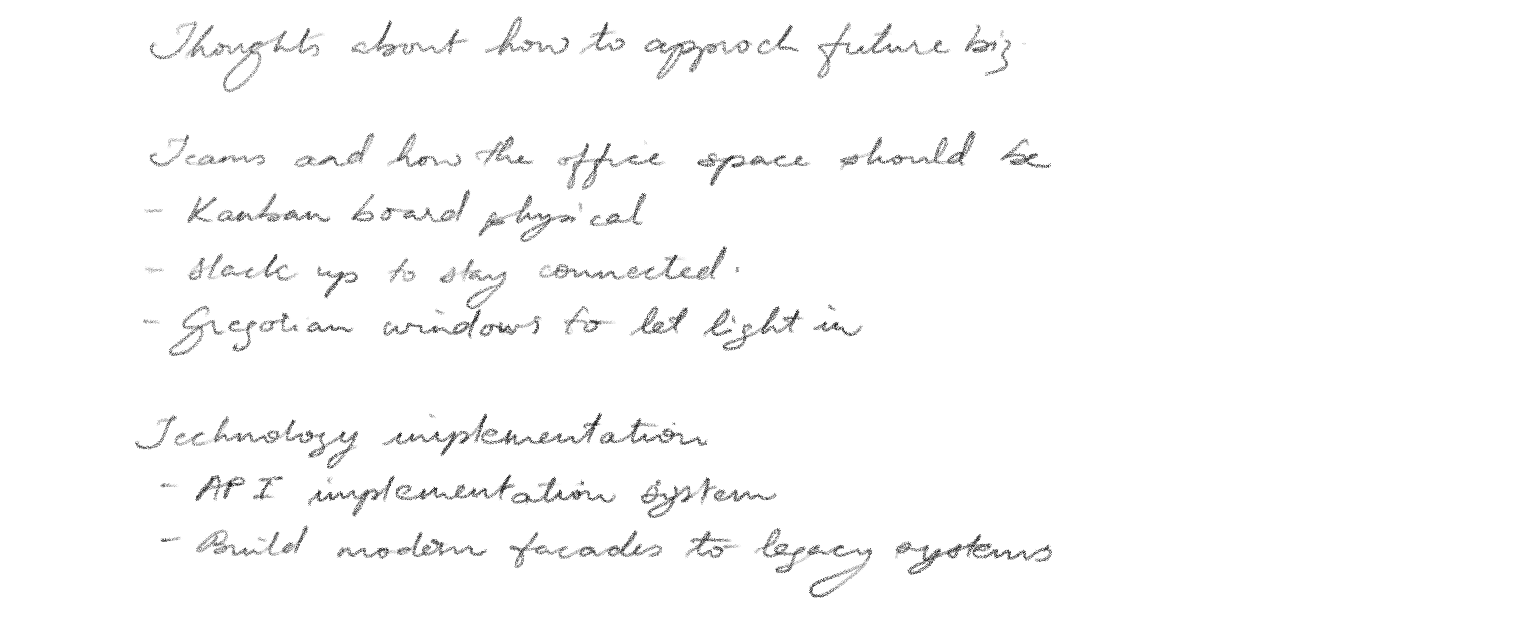 Thoughts about how to approch future biz
Teams and how the office space should be
- Kanban board physical
- slack up to stay connected.
- Gregorian windows to let light in
Technology implementation
- API implementation system
- Build modern facades to legacy systems